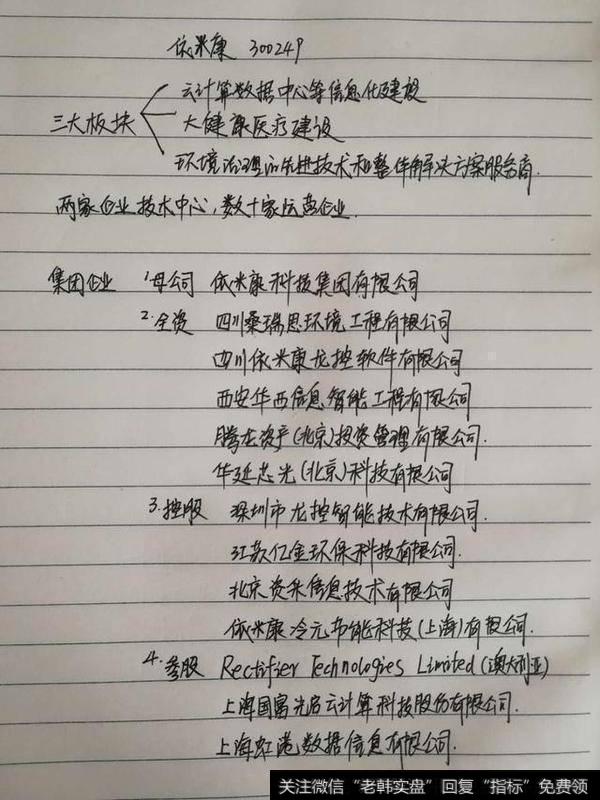 依米康 300249
云计算数据中心等信息化建设
三大板块
大健康医疗建设
环境治理的先进技术和整体解决方案服务商.
两家企业技术中心,数十家运营企业.
集团企业 1.母公司 依米康科技集团有限公司
2.全资 四川桑瑞思环境工程有限公司
四川依米康龙控软件有限公司
西安华西信息智能工程有限公司
腾龙资产(北京)投资管理有限公司.
华延芯光(北京)科技有限公司
3.控股 深圳市龙控智能技术有限公司.
江苏亿金环保科技有限公司.
北京资采信息技术有限公司
依米康冷元节能科技(上海)有限公司.
4.参股 Rectifier Technologies Limited(澳大利亚)
上海国富光启云计算科技股份有限公司.
上海虹港数据信息有限公司.
关注微信“老韩实盘”回复“指标”免费领